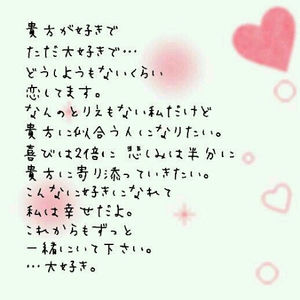 貴方が好きで
ただ大好きで…
どうしようもないくらい
恋してます。
なんのとりえもない私だけど
貴方に似合う人になりたい。
喜びは2倍に 悲しみは半分に
貴方に寄り添っていきたい。
こんなに好きになれて
私は幸せだよ。
これからもずっと
一緒にいて下さい。
…大好き。